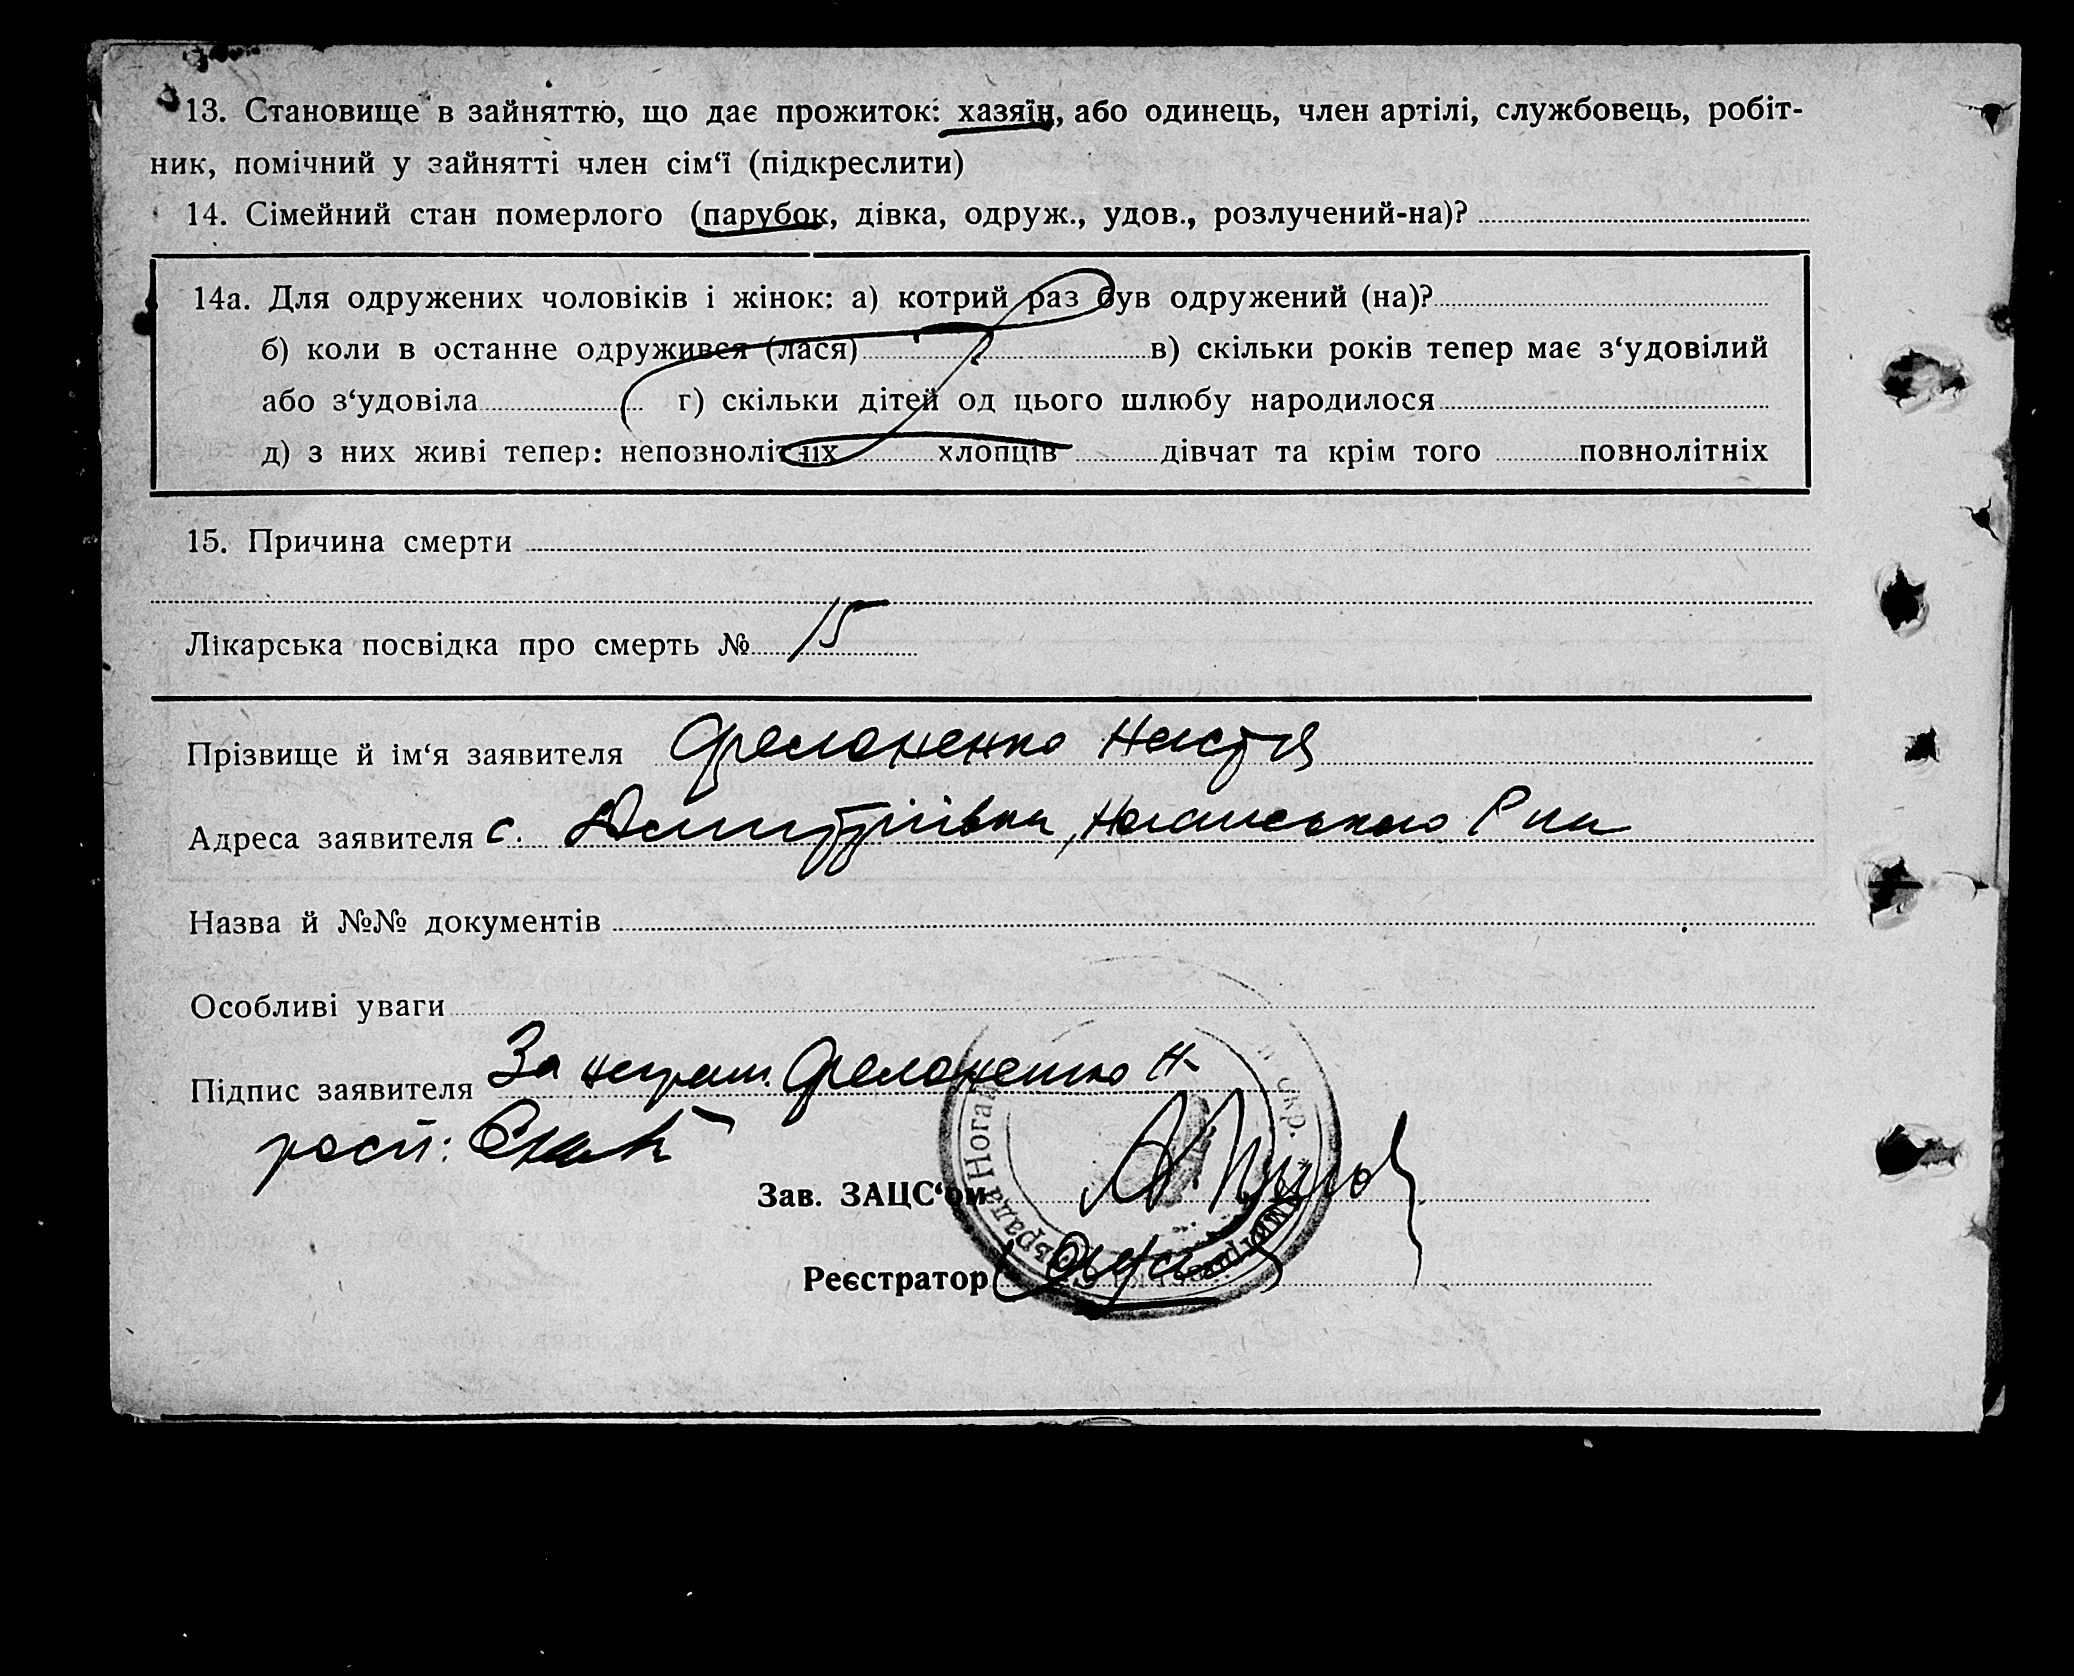 13. Становище в зайняттю, що дає прожиток: хазяїн, або одинець, член артілі, службовець, робіт-
ник, помічний у зайнятті член сім‘ї (підкреслити)
14. Сімейний стан померлого (парубок, дівка, одруж., удов., розлучений-на)?
14а. Для одружених чоловіків і жінок: а) котрий раз був одружений (на)?
б) коли в останне одружився (лася) в) скільки років тепер має з‘удовілий
або з‘удовіла г) скільки дітей од цього шлюбу народилося
д) з них живі тепер: неповнолітніх хлопців дівчат та крім того повнолітніх
15. Причина смерти
Лікарська посвідка про смерть № 15
Прізвище й ім‘я заявителя Настя
Адреса заявителя с. Дмитріївка, Ногайського Р на
Назва й №№ документів
Особливі уваги
Підпис заявителя За неграм. Н
расп:
Зав. ЗАЦС‘ом
Реєстратор